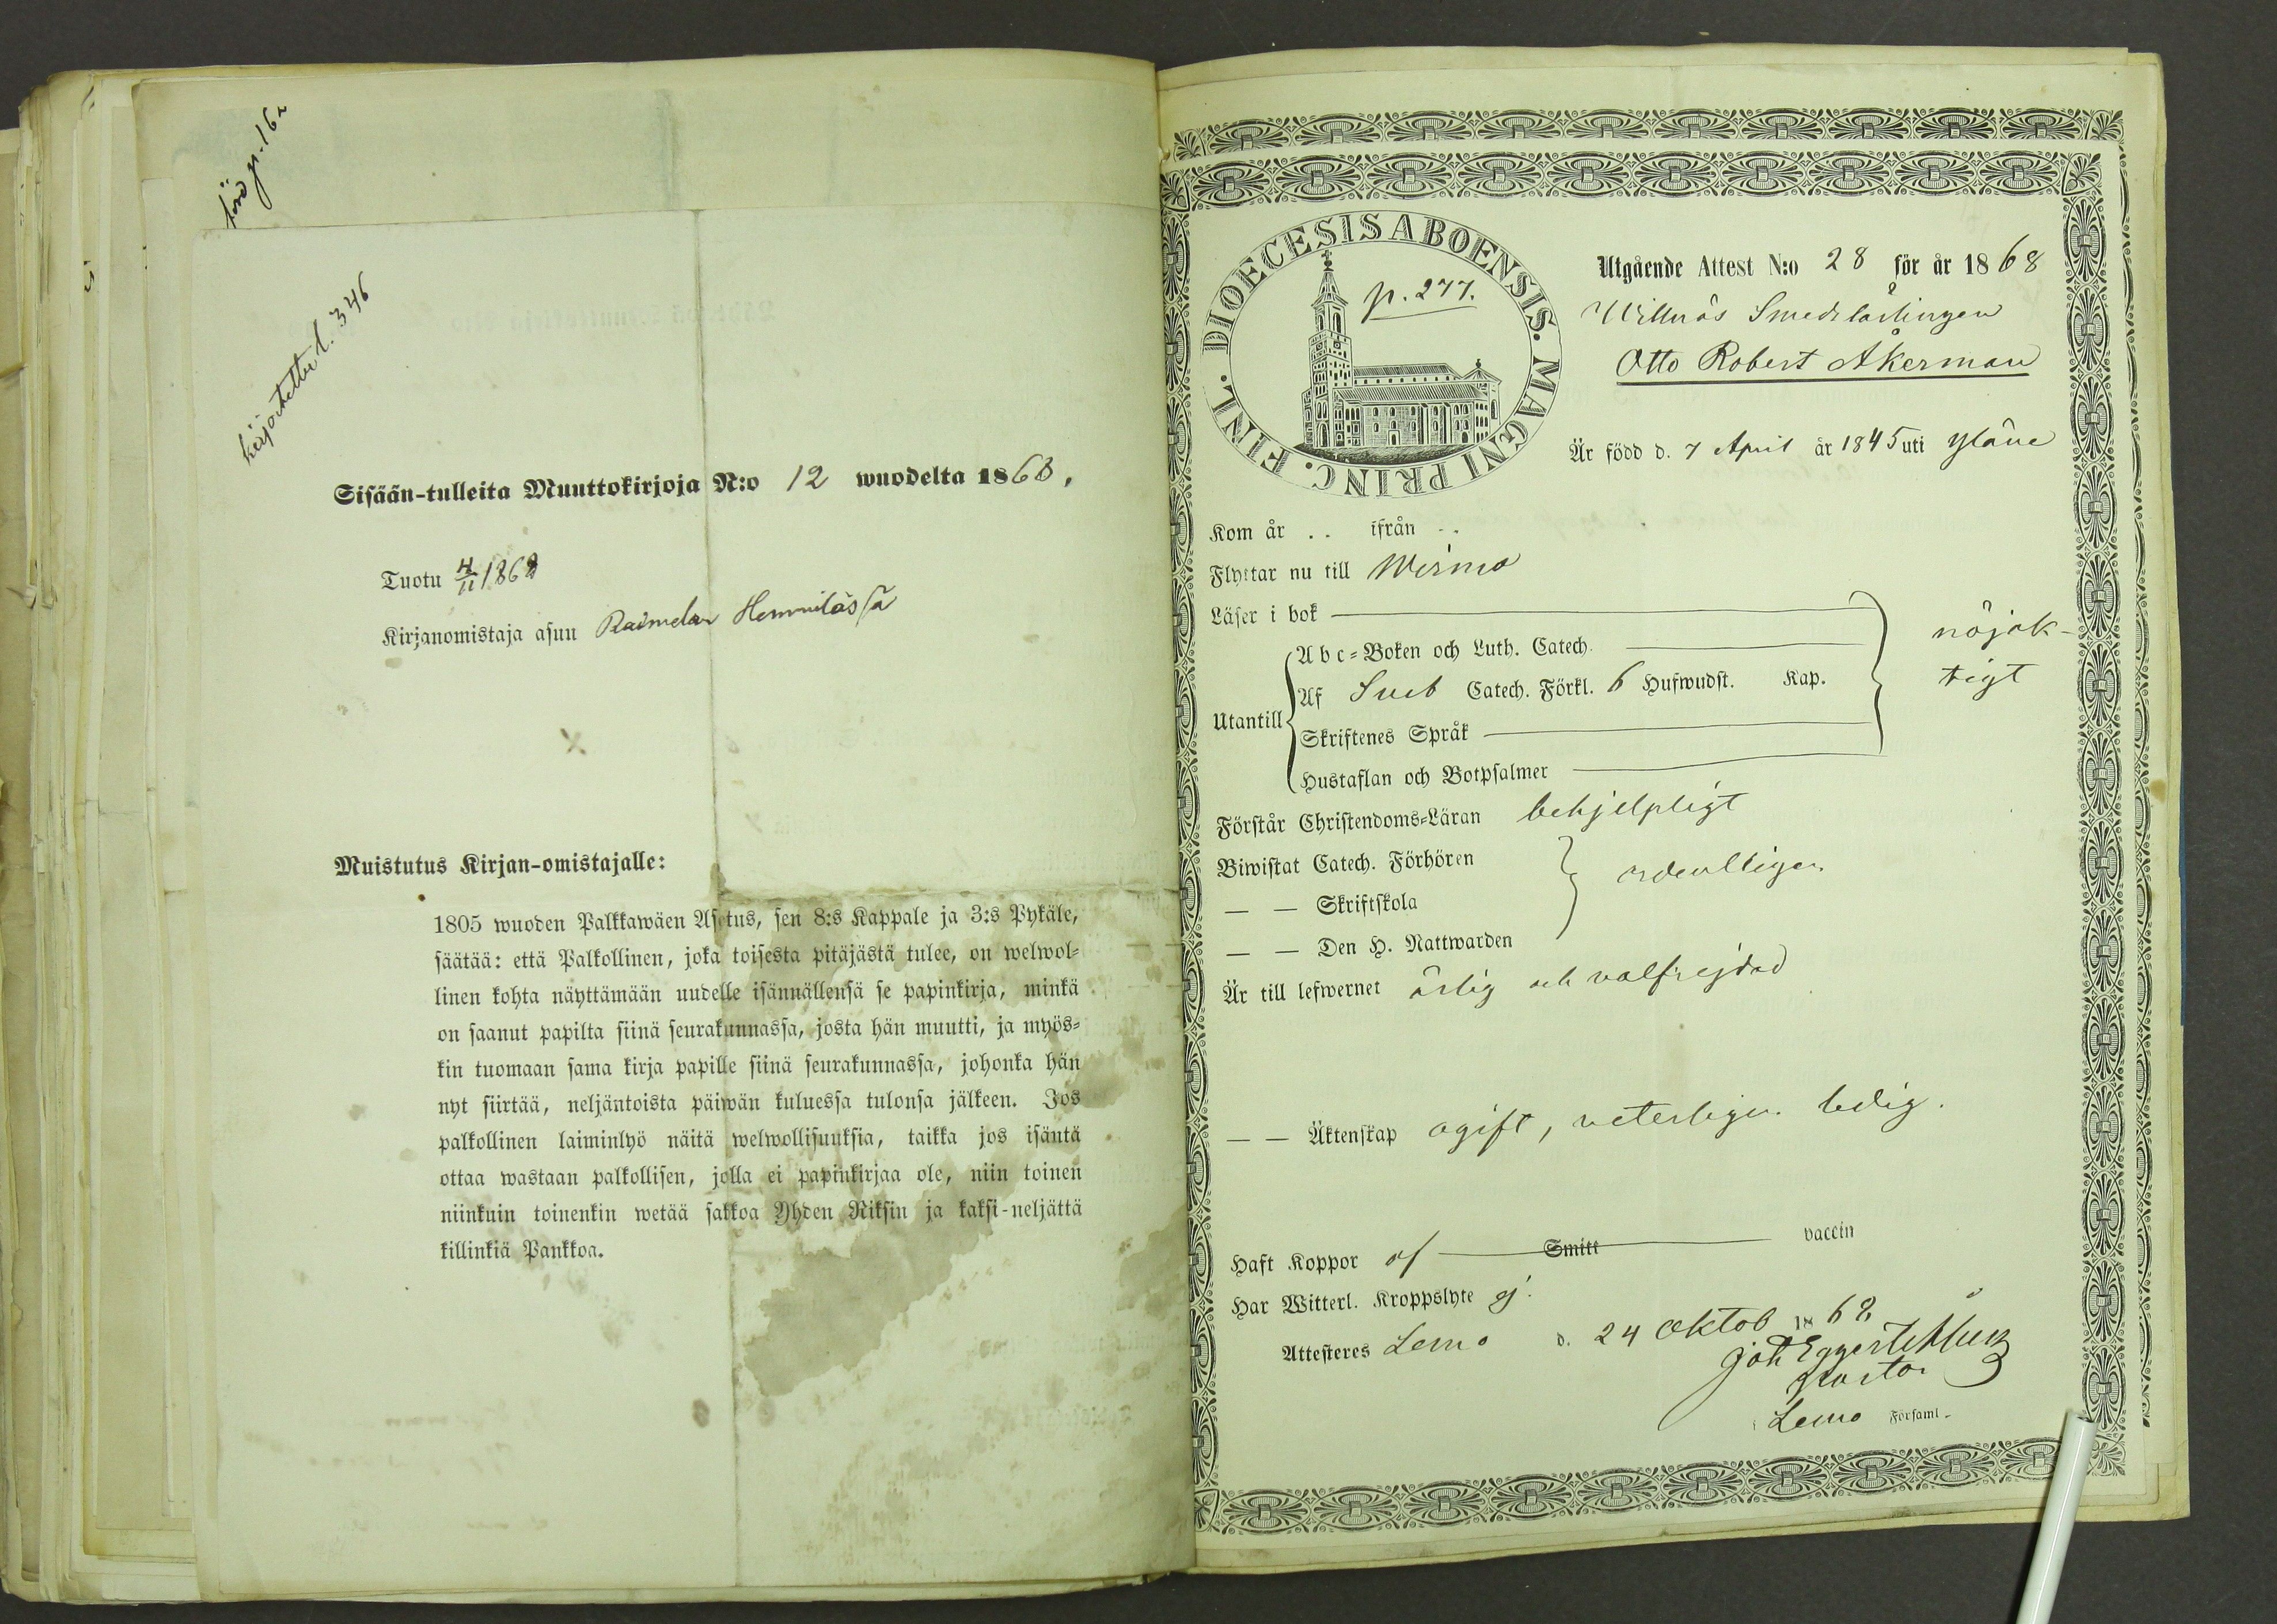 införd p. 16
kirjoitettu l. 346
Sisään-tulleita Muuttokirjoja N:o 12 wuodelta 1868.
Tuotu 4/11 1868
Kirjanomistaja asuu Raimelan Hemmilässä
Muistutus Kirjan-omistajalle:
1805 wuoden Palkkawäen Asetus, sen 8:s Kappale ja 3:s Pykäle,
säätää: että Palkollinen, joka toisesta pitäjästä tulee, on welwol-
linen kohta näyttämään uudelle isännällensä se papinkirja, minkä
on saanut papilta siinä seurakunnassa, josta hän muutti, ja myös-
kin tuomaan sama kirja papille siinä seurakunnassa, johonka hän
nyt siirtää, neljäntoista päiwän kuluessa tulonsa jälkeen. Jos
palkollinen laiminlyö näitä welwollisuuksia, taikka jos isäntä
ottaa wastaan palkollisen, jolla ei papinkirjaa ole, niin toinen
niinkuin toinenkin wetää sakkoa Yhden Riksin ja kaksi-neljättä
killinkiä Pankkoa.
DIOECESIS ABOENSIS. MAGNI PRINC. FINL.
p. 277.
Utgående Attest N:o 28 för år 1868
Willnäs Smedslärlingen
Otto Robert Åkerman
Är född d. 7 April år 1845 uti Yläne
Kom år .. ifrån ..
Flyttar nu till Wirmo
Läser i bok
Abc-Boken och Luth. Catech.
nöjak-
Utantill
Af Sveb Catech. Förkl. 6 Hufwudst. Kap.
tigt
Skriftenes Språk
Hustaflan och Botpsalmer
Förstår Christendoms-Läran behjelpligt
Biwistat Catech. Förhören
ordentligen
— — Skriftskola
— — Den H. Nattwarden
Är till lefwernet ärlig och välfrejdad
— — Äktenskap ogift, veterligen ledig.
Haft Koppor af Smitt vaccin
Har Witterl. Kroppslyte ej.
Attesteres Lemo d. 24 Oktob 1868
Joh Eggert
Pastor
i Lemo Församl.